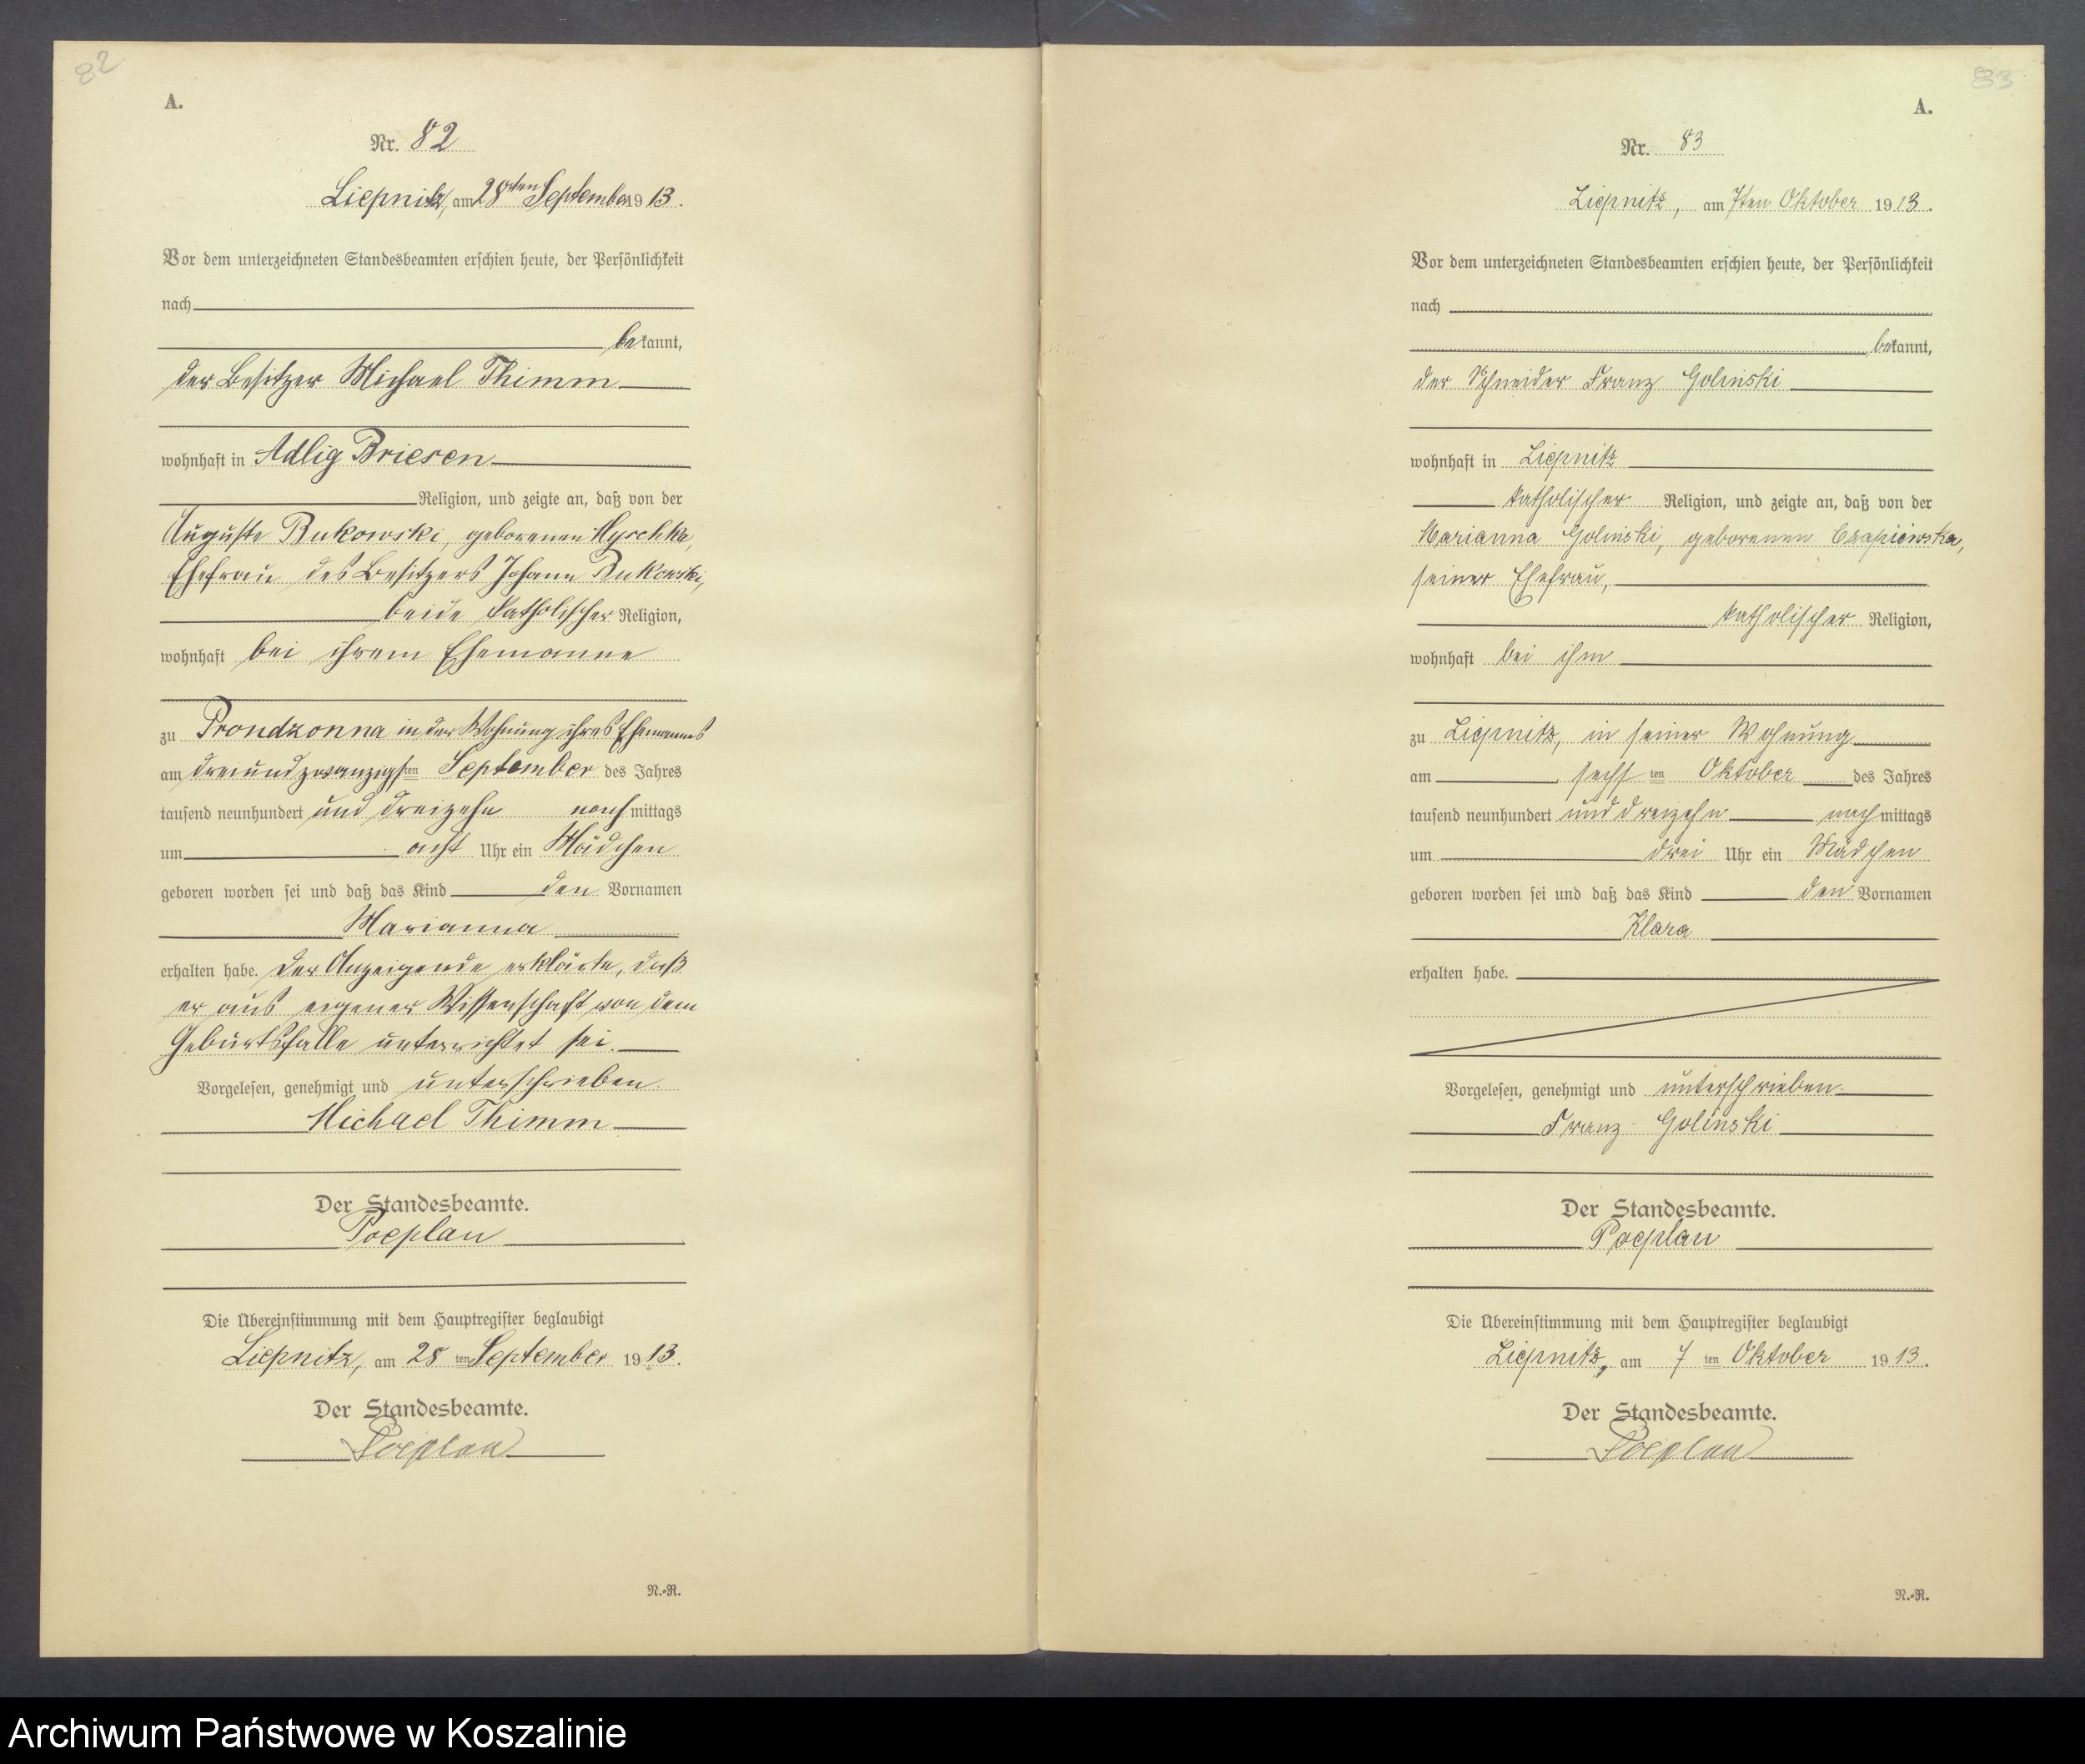 82
A.
Nr. 82
Liepnitz, am 28ten September 1913.
Vor dem unterzeichneten Standesbeamten erschien heute, der Persönlichkeit
nach
bekannt,
der Besitzer Michael Thimm
wohnhaft in Adlig Briesen
Religion, und zeigte an, daß von der
Auguste Bukowski, geborenen Myschka,
Ehefrau des Besitzers Johann Bukowski,
beide katholischer Religion,
wohnhaft bei ihrem Ehemanne
zu Prondzonna in der Wohnung ihres Ehemannes
am dreiundzwanzigsten September des Jahres
tausend neunhundert und dreizehn nachmittags
um acht Uhr ein Mädchen
geboren worden sei und daß das Kind den Vornamen
Marianna
erhalten habe. Der Anzeigende erklärte, daß
er aus eigener Wissenschaft von dem
Geburtsfalle unterrichtet sei.
Vorgelesen, genehmigt und unterschrieben.
Michael Thimm
Der Standesbeamte.
Poeplau
Die Übereinstimmung mit dem Hauptregister beglaubigt
Liepnitz, am 28 ten September 1913.
Der Standesbeamte.
Poeplau
N.-R.
83
A.
Nr. 83
Liepnitz, am 7ten Oktober 1913.
Vor dem unterzeichneten Standesbeamten erschien heute, der Persönlichkeit
nach
bekannt,
der Schneider Franz Golinski
wohnhaft in Liepnitz
katholischer Religion, und zeigte an, daß von der
Marianna Golinski, geborenen Czapiewska,
seiner Ehefrau,
katholischer Religion,
wohnhaft bei ihm
zu Liepnitz, in seiner Wohnung
am sechsten Oktober des Jahres
tausend neunhundert und dreizehn nachmittags
um drei Uhr ein Mädchen
geboren worden sei und daß das Kind den Vornamen
Klara
erhalten habe.
Vorgelesen, genehmigt und unterschrieben.
Franz Golinski
Der Standesbeamte.
Poeplau
Die Übereinstimmung mit dem Hauptregister beglaubigt
Liepnitz, am 7 ten Oktober 1913.
Der Standesbeamte.
Poeplau
N.-R.
Archiwum Państwowe w Koszalinie